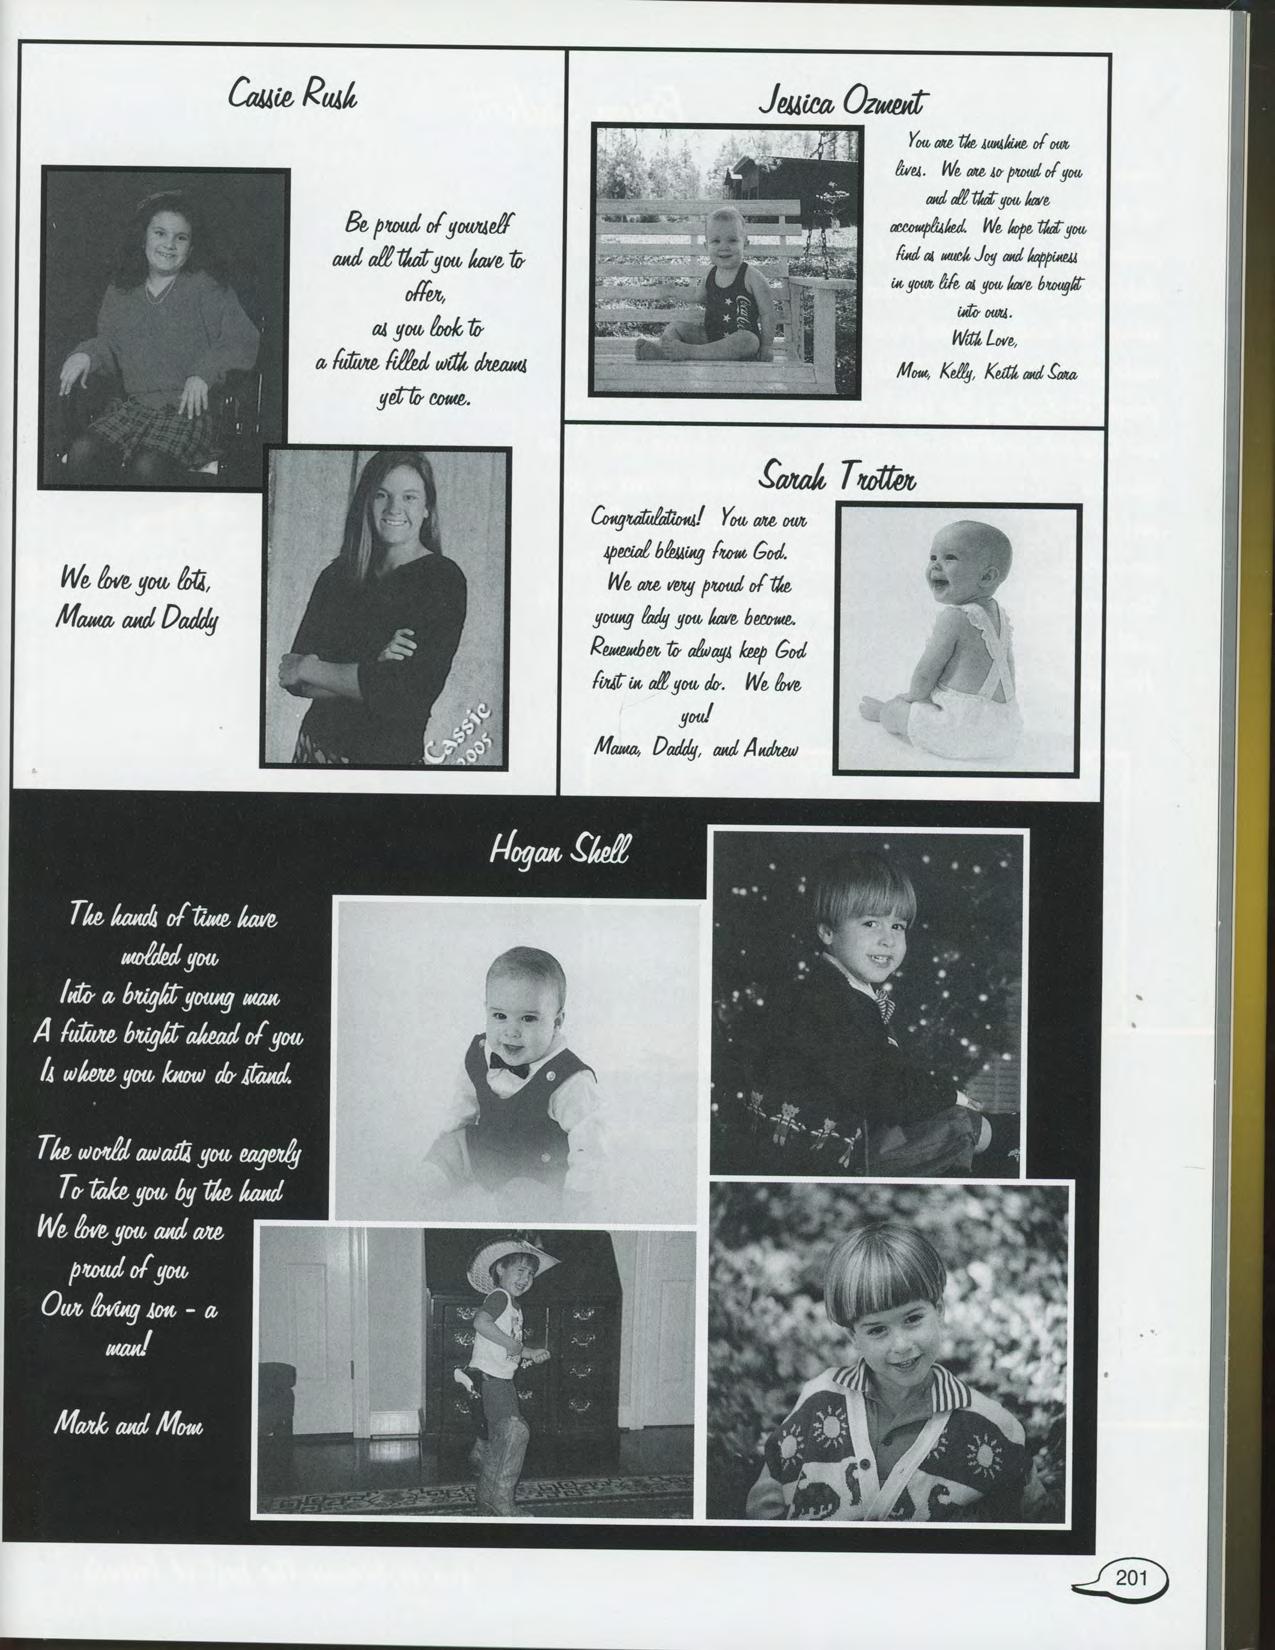 Cassie Rush
Be proud of yourself
and all that you have to
offer,
as you look to
a future filled with dreams
yet to come.
We love you lots,
Mama and Daddy
Cassie
2005
Jessica Ozment
You are the sunshine of our
lives. We are so proud of you
and all that you have
accomplished. We hope that you
find as much Joy and happiness
in your life as you have brought
into ours.
With Love,
Mom, Kelly, Keith and Sara
Coca-Cola
Sarah Trotter
Congratulations! You are our
special blessing from God.
We are very proud of the
young lady you have become.
Remember to always keep God
first in all you do. We love
you!
Mama, Daddy, and Andrew
Hogan Shell
The hands of time have
molded you
Into a bright young man
A future bright ahead of you
Is where you know do stand.
The world awaits you eagerly
To take you by the hand
We love you and are
proud of you
Our loving son - a
man!
Mark and Mom
201